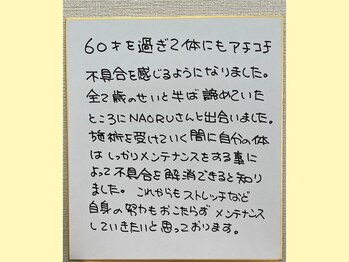 60才を過ぎて体にもアチコチ
不具合を感じるようになりました。
全て歳のせいと半ば諦めていた
ところにNAORUさんと出合いました。
施術を受けていく間に自分の体
はしっかりメンテナンスをする事に
よって不具合を解消できると知り
ました。これからもストレッチなど
自身の努力もおこたらずメンテナンス
していきたいと思っております。